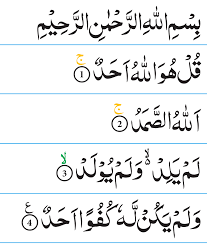 بِسْمِ اللّٰهِ الرَّحْمٰنِ الرَّحِيْمِ
قُلْ هُوَ اللّٰهُ اَحَدٌ ۚ ①
اَللّٰهُ الصَّمَدُ ۚ ②
لَمْ يَلِدْ ۙ وَلَمْ يُوْلَدْ ۙ ③
وَلَمْ يَكُنْ لَّهٗ كُفُوًا اَحَدٌ ع ④